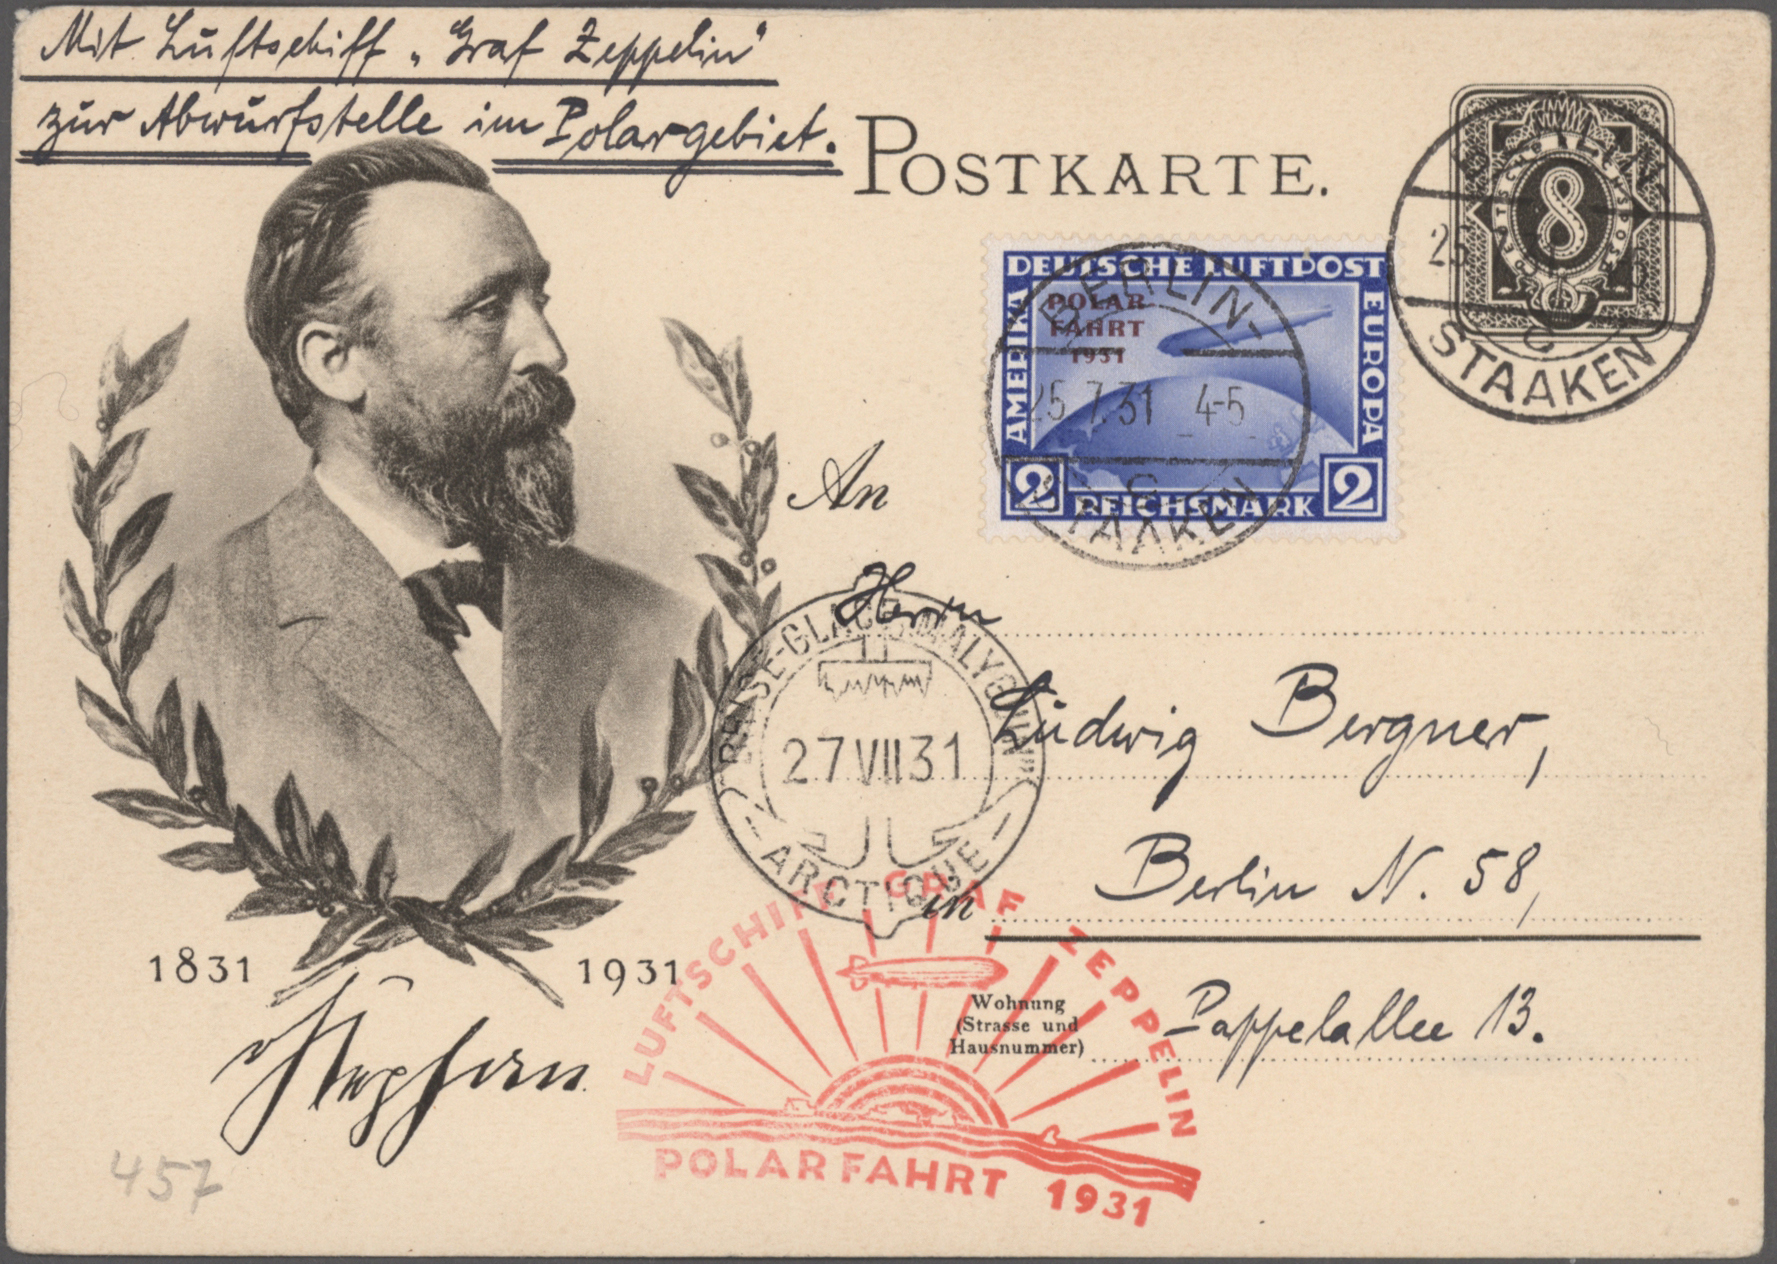 Mit Luftschiff „Graf Zeppelin"
zur Abwurfstelle im Polargebiet.
POSTKARTE.
DEUTSCHE REICHSPOST
8
BERLIN-
25.7.31
STAAKEN
C
DEUTSCHE LUFTPOST
POLAR
FAHRT
1931
AMERIKA
EUROPA
2 REICHSMARK 2
BERLIN-
25.7.31 4-5
C
STAAKEN
An
Herrn
BRISE-GLACE „MALYGUIN"
27 VII 31
- ARCTIQUE -
Ludwig Bergner,
in Berlin N. 58,
Wohnung
(Strasse und
Hausnummer)
Pappelallee 13.
1831 1931
Stephan
LUFTSCHIFF GRAF ZEPPELIN
POLARFAHRT 1931
457